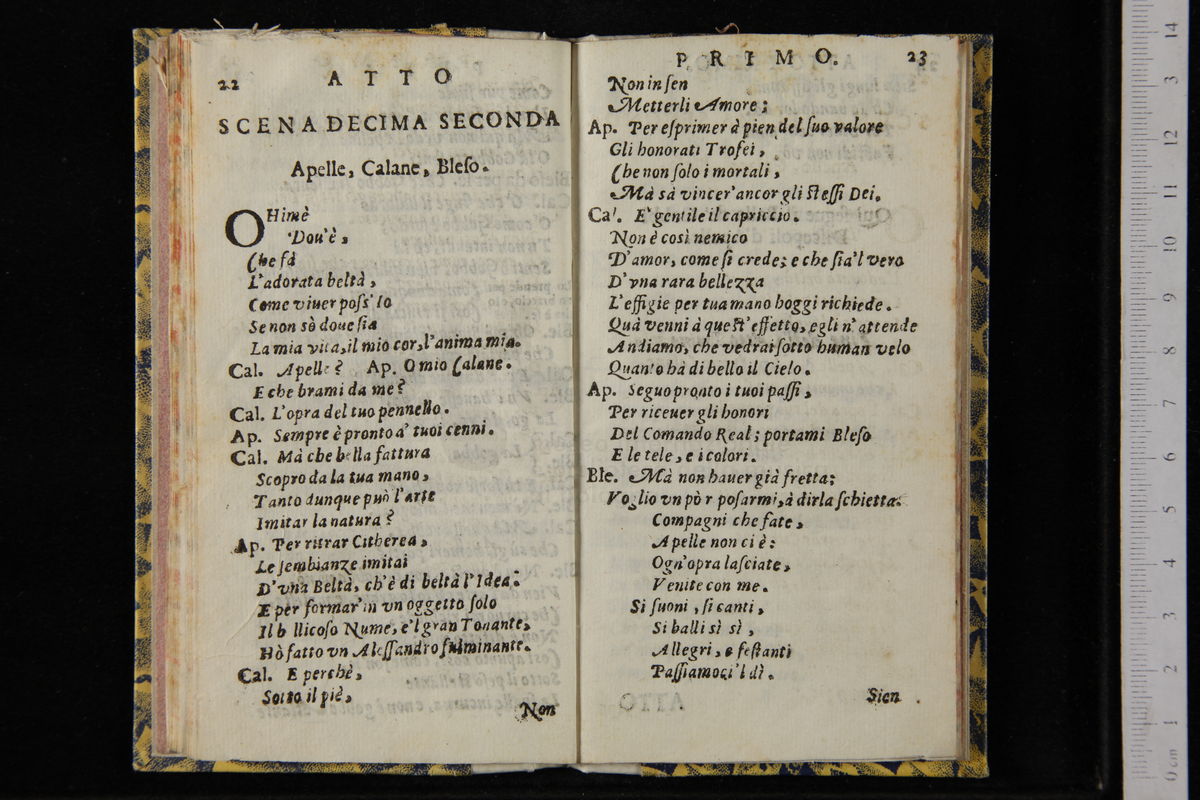 22 ATTO
SCENA DECIMA SECONDA
Apelle, Calane, Bleso.
OHimè
Dou'è,
Che fà
L'adorata beltà,
Come viuer poss'Io
Se non sò doue sia
La mia vita, il mio cor, l'anima mia.
Cal. Apelle? Ap. O mio Calane.
E che brami da me?
Cal. L'opra del tuo pennello.
Ap. Sempre è pronto a' tuoi cenni.
Cal. Mà che bella fattura
Scopro da la tua mano,
Tanto dunque può l'arte
Imitar la natura?
Ap. Per ritrar Citherea,
Le sembianze imitai
D'vna Beltà, ch'è di beltà l'Idea:
E per formar'in vn oggetto solo
Il b llicoso Nume, e'l gran Tonante,
Hò fatto vn Alessandro fulminante.
Cal. E perchè,
Sotto il piè,
Non
PRIMO. 23
Non in sen
Metterli Amore;
Ap. Per esprimer à pien del suo valore
Gli honorati Trofei,
Che non solo i mortali,
Mà sà vincer'ancor gli stessi Dei.
Cal. E' gentile il capriccio.
Non è così nemico
D'amor, come si crede; e che sia'l vero
D'vna rara bellezza
L'effigie per tua mano hoggi richiede.
Quà venni à quest'effetto, egli n'attende
Andiamo, che vedrai sotto human velo
Quanto hà di bello il Cielo.
Ap. Seguo pronto i tuoi passi,
Per riceuer gli honori
Del Comando Real; portami Bleso
E le tele, e i colori.
Ble. Mà non hauer già fretta:
Voglio vn pò r posarmi, à dirla schietta.
Compagni che fate,
Apelle non ci è:
Ogn'opra lasciate,
Venite con me.
Si suoni, si canti,
Si balli sì sì,
Allegri, e festanti
Passiamoci'l dì.
Sien